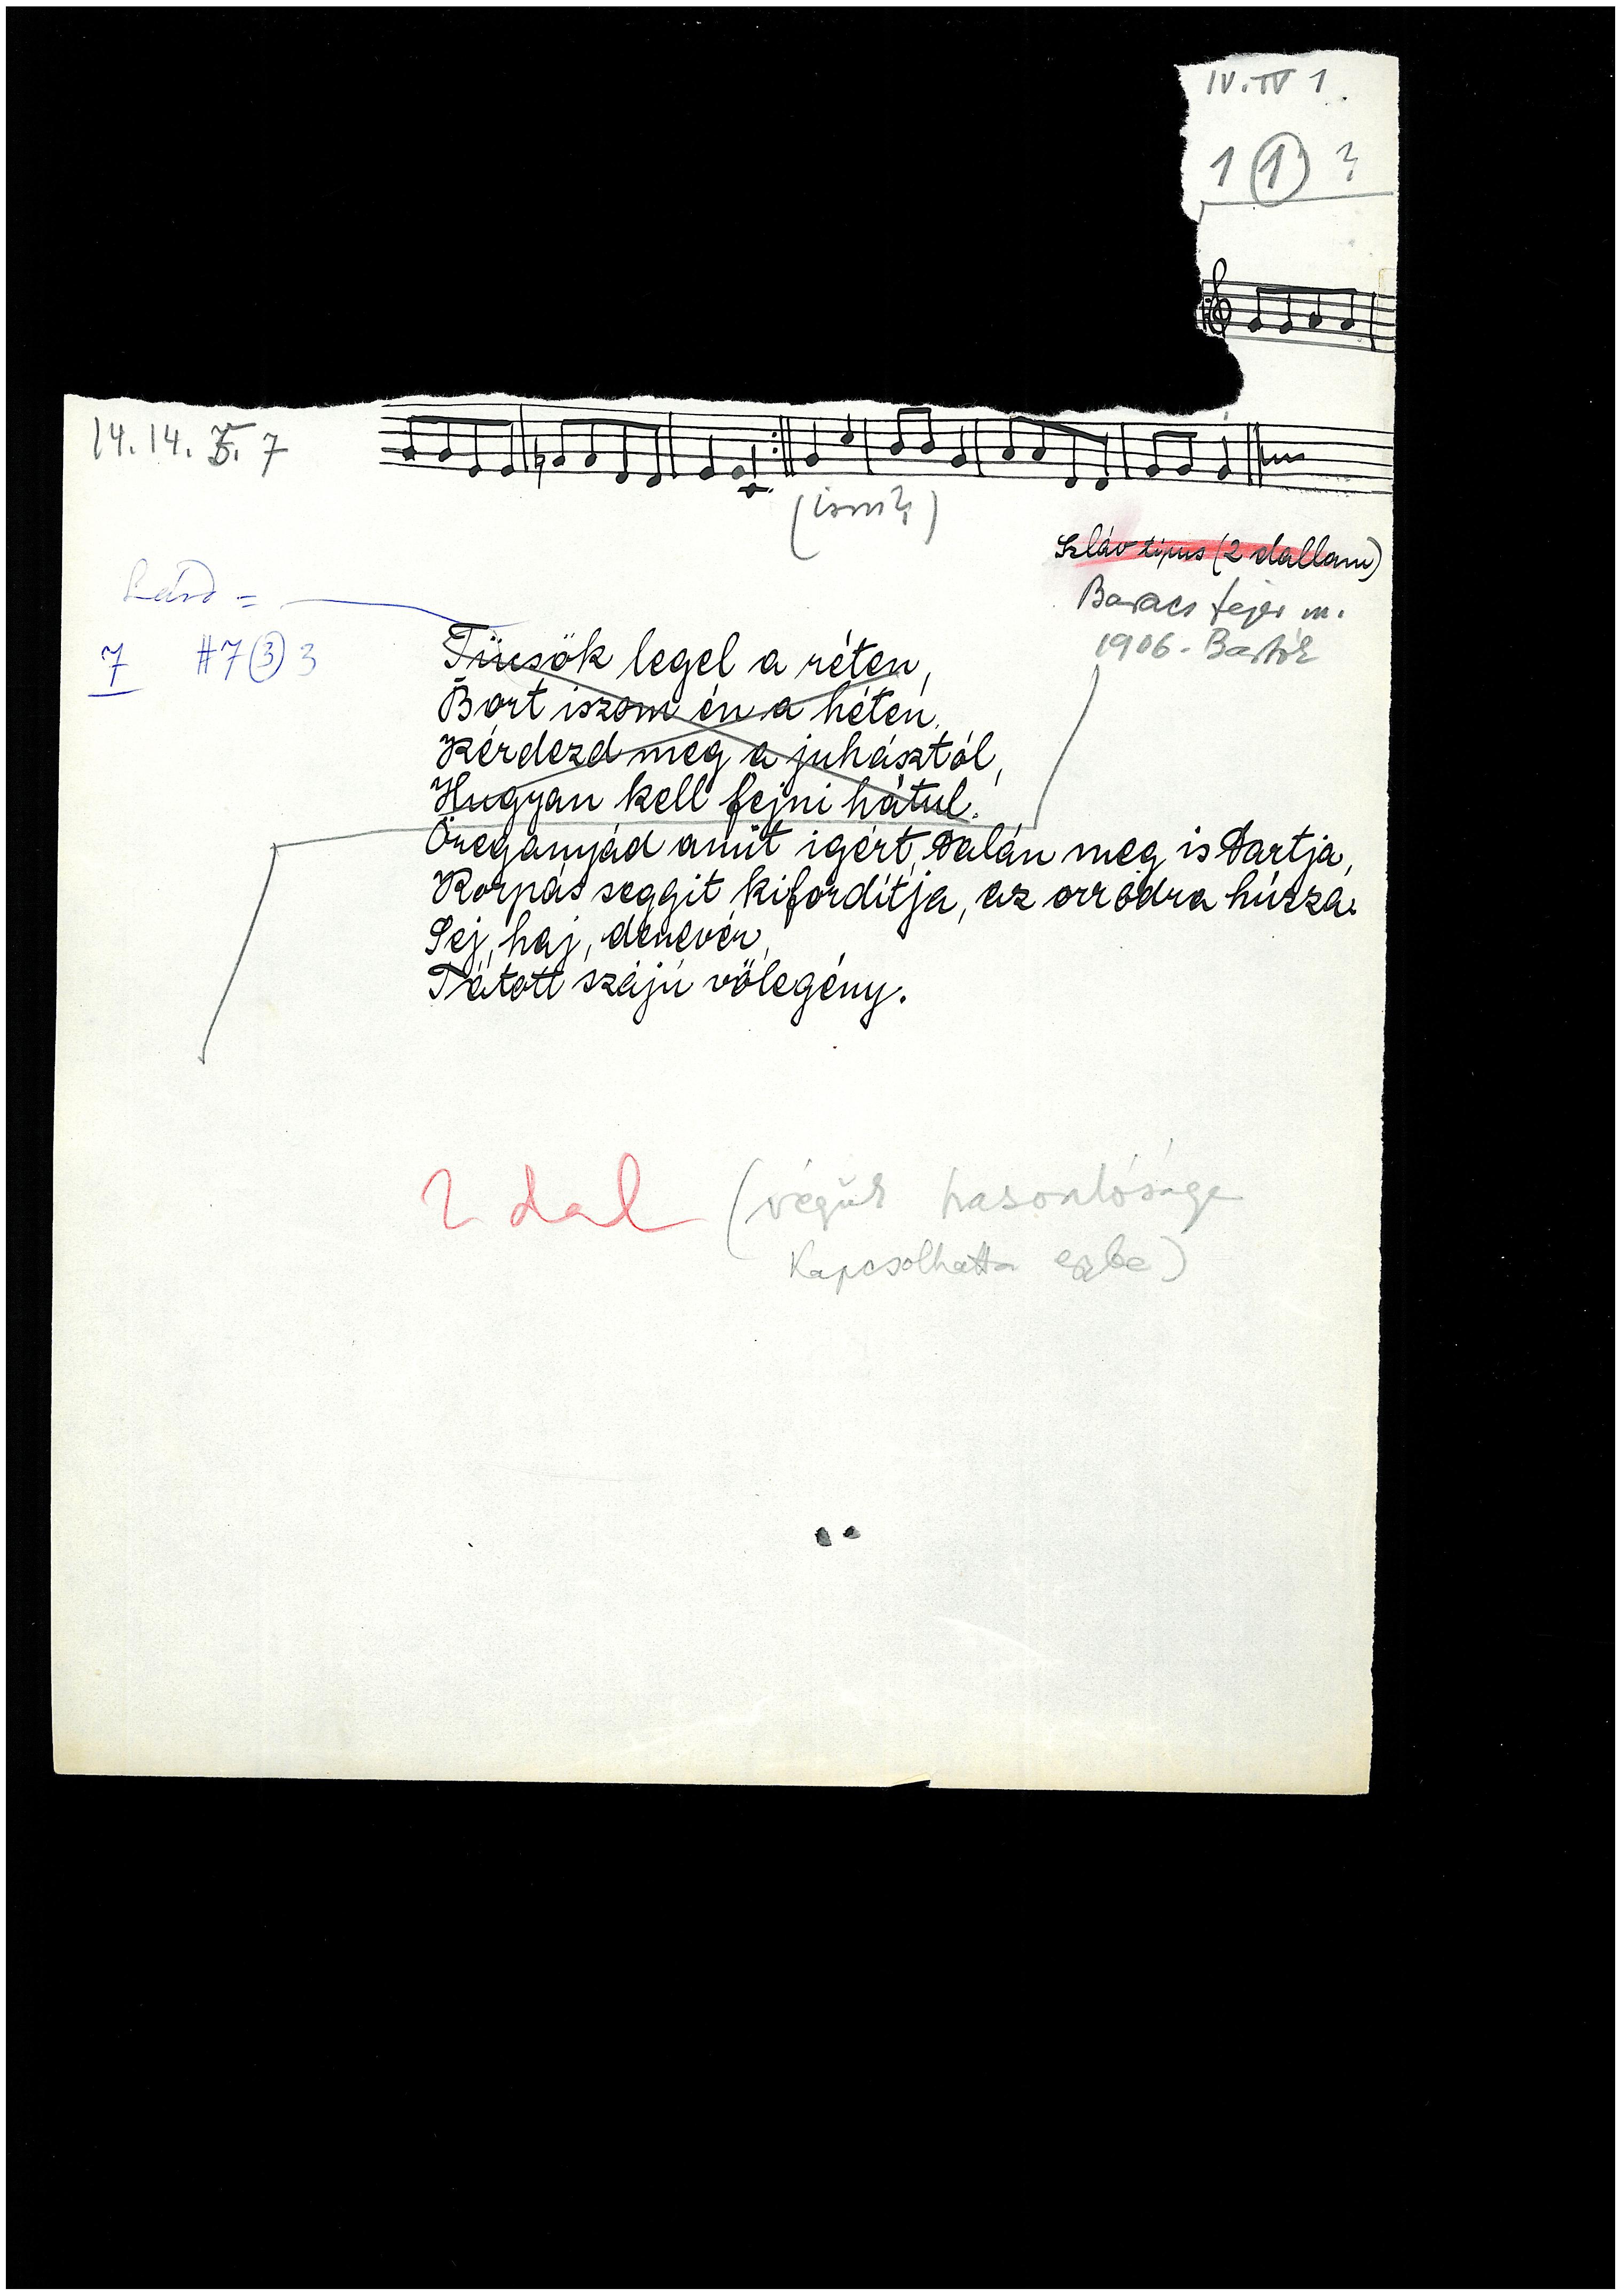 IV. IV 1.
1 1 ?
14. 14. 5. 7
(ism?)
Szláv tipus (2 dallam)
Baracs Fejér m.
1906. Bartók
Lásd =
7 #7 3 3
Tücsök legel a réten,
Bort iszom én a héten.
Kérdezd meg a juhásztól,
Hugyan kell fejni hátul.
Öreganyád amit igért, talán meg is tartja,
Korpás seggit kifordítja, az orrodra húzza.
Sej, haj, denevér,
Tátott szájú vőlegény.
2 dal (végük hasonlósága
kapcsolhatta egybe)